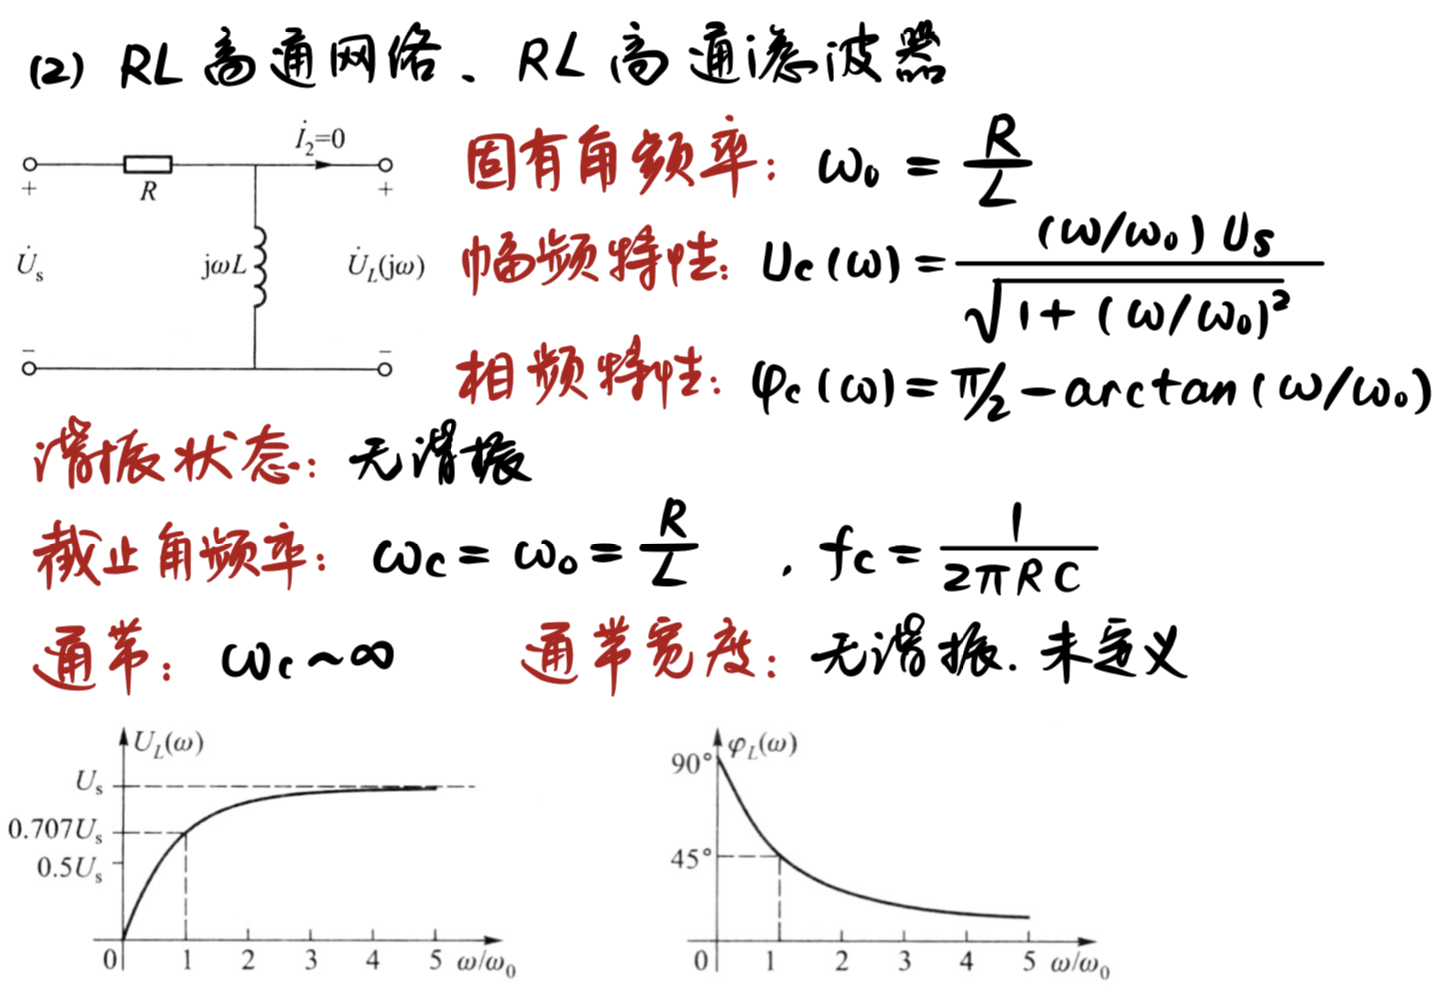 (2) RL 高通网络、RL 高通滤波器
R
İ₂=0
+
+
U̇ₛ
jωL
U̇_L(jω)
−
−
固有角频率: ω₀ = R/L
幅频特性: Uc(ω) = (ω/ω₀)Us / √(1+(ω/ω₀)²)
相频特性: φc(ω) = π/2 − arctan(ω/ω₀)
谐振状态: 无谐振
截止角频率: ωc = ω₀ = R/L , fc = 1/(2πRC)
通带: ωc ~ ∞ 通带宽度: 无谐振. 未定义
U_L(ω)
Uₛ
0.707Uₛ
0.5Uₛ
0 1 2 3 4 5 ω/ω₀
φ_L(ω)
90°
45°
0 1 2 3 4 5 ω/ω₀